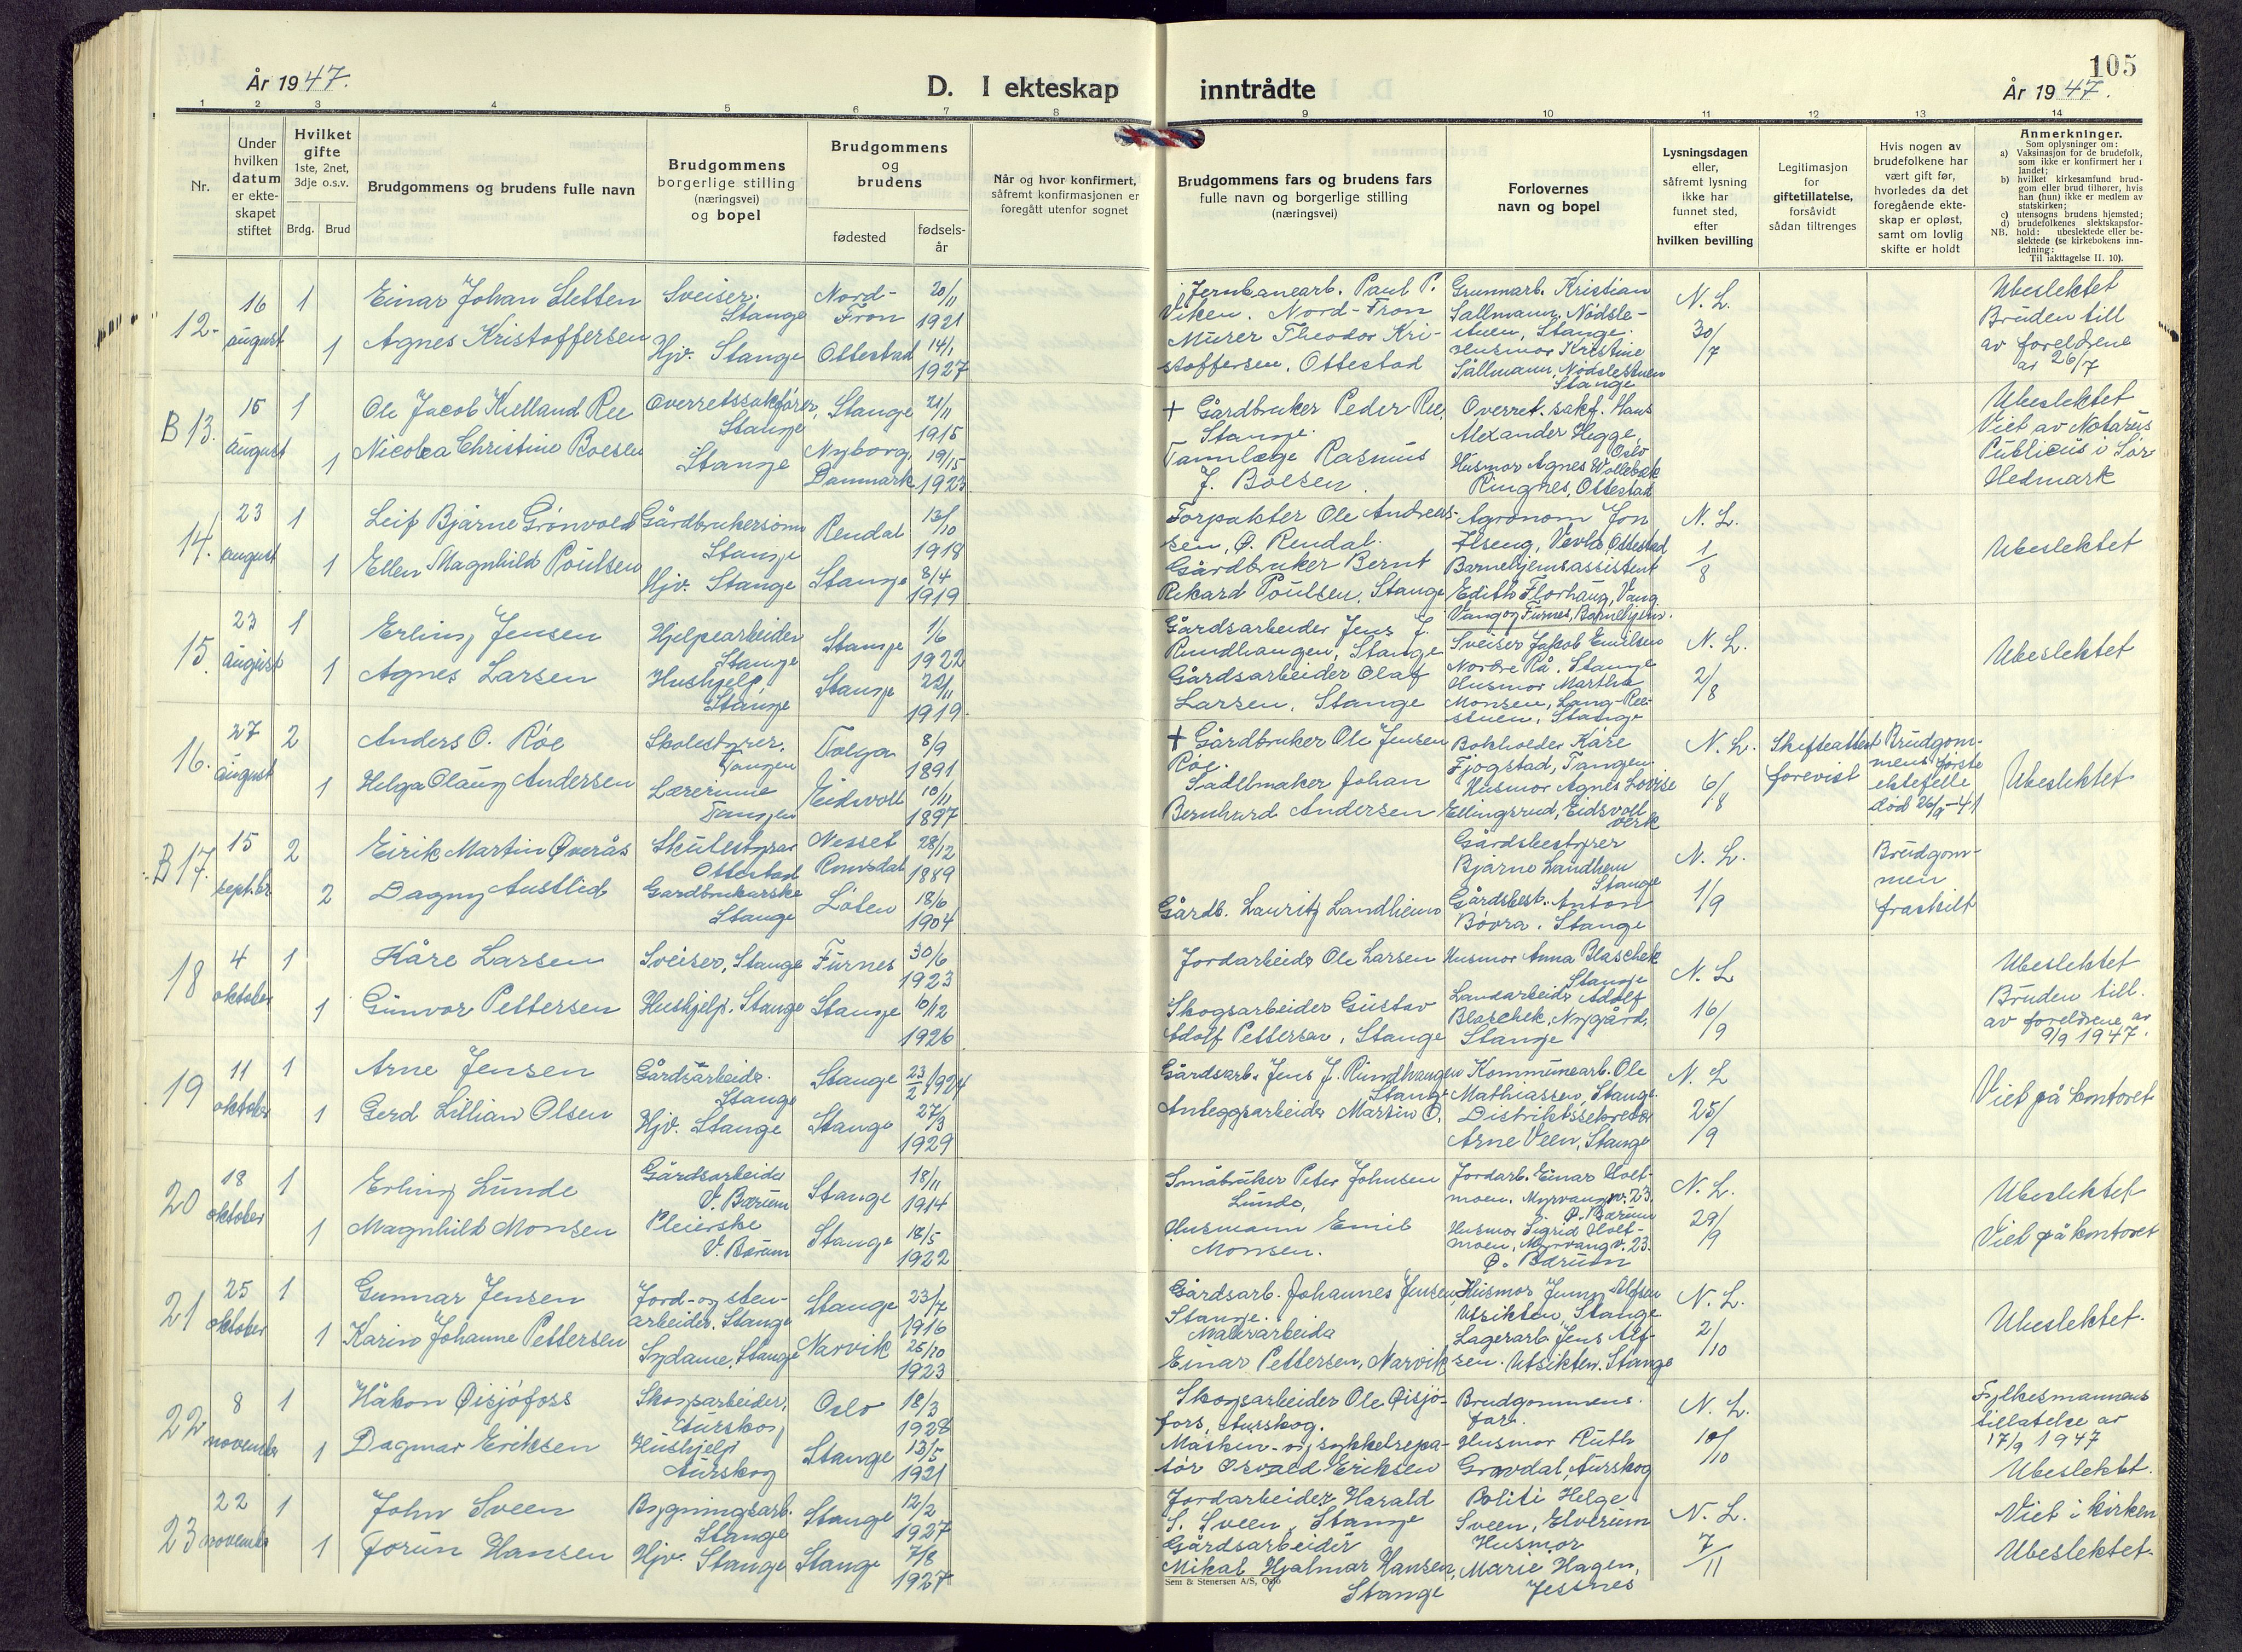 105
År 1947.
D. I ekteskap inntrådte
År 1947.
1 2 3 4 5 6 7 8 9 10 11 12 13 14
Nr.
Under hvilken datum er ekteskapet stiftet
Hvilket gifte 1ste, 2net, 3dje o.s.v.
Brdg. Brud
Brudgommens og brudens fulle navn
Brudgommens borgerlige stilling (næringsvei) og bopel
Brudgommens og brudens
fødested
fødselsår
Når og hvor konfirmert, såfremt konfirmasjonen er foregått utenfor sognet
Brudgommens fars og brudens fars fulle navn og borgerlige stilling (næringsvei)
Forlovernes navn og bopel
Lysningsdagen eller, såfremt lysning ikke har funnet sted, efter hvilken bevilling
Legitimasjon for giftetillatelse, forsåvidt sådan tiltrenges
Hvis nogen av brudefolkene har vært gift før, hvorledes da det foregående ekteskap er opløst, samt om lovlig skifte er holdt
Anmerkninger.
Som oplysninger om:
a) Vaksinasjon for de brudefolk, som ikke er konfirmert her i landet;
b) hvilket kirkesamfund brudgom eller brud tilhører, hvis han (hun) ikke er medlem av statskirken;
c) utensogns brudens hjemsted;
d) brudefolkenes slektskapsforhold: ubeslektede eller beslektede (se kirkebokens innledning:
NB.
Til iakttagelse II. 10).
12. 16 august 1 Einar Johan Sletten Sveiser. Stange Nord-Fron 20/11 1921
1 Agnes Kristoffersen Hjv. Stange Ottestad 14/1 1927
Jernbanearb. Paul P. Viken. Nord-Fron
Murer Theodor Kristoffersen. Ottestad
Grunnarb. Kristian Sallmann. Nødslestuen, Stange.
Husmor Kristine Sallmann, Nødslestuen Stange
N. L. 30/7
Ubeslektet Bruden till av foreldrene av 26/7
B 13. 15 august 1 Ole Jacob Kielland Ree Overretssakfører, Stange Stange 21/11 1915
1 Nicolea Christine Boesen Stange Nyborg, Danmark 1923
† Gårdbruker Peder Ree, Stange.
Tannlæge Rasmus J. Boesen.
Overret. sakf. Hans Alexander Hegge, Oslo
Husmor Agnes Wollebæk Ringnes, Ottestad
Ubeslektet Viet av Notarius Publicus i Sør Hedmark
14. 23 august 1 Leif Bjarne Grønvold Gårdbrukersønn Stange Rendal 13/10 1918
1 Ellen Magnhild Poulsen Hjv. Stange Stange 8/4 1919
Forpakter Ole Andreassen, Ø. Rendal.
Gårdbruker Bernt Rikard Poulsen, Stange
Agronom Jon Ilseng, Vevla, Ottestad
Barnehjemsassistent Edith Florhaug, Vang Vang og Furnes, Barnehjem.
N. L. 1/8
Ubeslektet
15. 23 august 1 Erling Jensen Hjelpearbeider Stange Stange 1/6 1922
1 Agnes Larsen Hushjelp Stange Stange 22/11 1919
Gårdsarbeider Jens J. Rundhaugen, Stange
Gårdsarbeider Olaf Larsen, Stange
Sveiser Jakob Emilsen Nordre Rå. Stange
Husmor Martha Monsen, Lang-Reestuen, Stange
N. L. 2/8
Ubeslektet
16. 27 august 2 Anders O. Røe Skolestyrer. Tangen Tolga 8/9 1891
1 Helga Olaug Andersen Lærerinne Tangen Eidsvoll 10/11 1897
† Gårdbruker Ole Jensen Røe.
Sadelmaker Johan Bernhard Andersen
Bokholder Kåre Fjogstad, Tangen.
Husmor Agnes Lovise Ellingsrud, Eidsvoll verk
N. L. 6/8
Skifteattest forevist
Brudgommens første ektefelle død 26/9-41
Ubeslektet
B 17. 15 septbr. 2 Eirik Martin Øverås Skulestyrar Ottestad Nesset Romsdal 28/12 1889
2 Dagny Austlid Gardbrukarske Stange Løten 18/6 1904
Gårdb. Lauritz Landheim
Gårdsbestyrer Bjarne Landheim Stange
Gårdsbest. Anton Bøvra. Stange
N. L. 1/9
Brudgommen fraskilt
18 4 oktober 1 Kåre Larsen Sveiser, Stange Furnes 30/6 1923
1 Gunvor Pettersen Hushjelp. Stange Stange 10/12 1926
Jordarbeider Ole Larsen
Skogsarbeider Gustav Adolf Pettersen, Stange
Husmor Anna Blaschek Stange
Landarbeider Adolf Blaschek, Nygård, Stange
N. L 16/9
Ubeslektet Bruden till. av foreldrene av 9/9 1947.
19 11 oktober 1 Arne Jensen Gårdsarbeider. Stange Stange 23/2 1924
1 Gerd Lillian Olsen Hjv. Stange Stange 27/3 1929
Gårdsarb. Jens J. Rundhaugen Stange
Anleggsarbeider Martin O.
Kommunearb. Ole Mathiassen, Stange.
Distriktssekretær Arne Veen, Stange
N. L 25/9
Viet på kontoret
20 18 oktober 1 Erling Lunde Gårdsarbeider V. Bærum Stange 18/11 1914
1 Magnhild Monsen Pleierske V. Bærum Stange 18/5 1922
Småbruker Peter Johnsen Lunde,
Husmann Emil Monsen.
Jordarb. Einar Holtmoen. Myrvangv. 23. Ø. Bærum
Husmor Sigrid Holtmoen, Myrvangv. 23. Ø. Bærum
N. L. 29/9
Ubeslektet Viet på kontoret
21 25 oktober 1 Gunnar Jensen Jord- og stenarbeider. Stange Stange 23/7 1916
1 Karin Johanne Pettersen Sydame. Stange Narvik 25/10 1923
Gårdsarb. Johannes Jensen, Stange.
Malmarbeider Einar Pettersen, Narvik
Husmor Jenny Alfsen Utsikten, Stange
Lagerarb. Jens Alfsen. Utsikten. Stange
N. L. 2/10
Ubeslektet.
22 8 november 1 Håkon Øisjøfoss Skogsarbeider, Aurskog Oslo 18/3 1928
1 Dagmar Eriksen Hushjelp Aurskog Stange 13/5 1921
Skogsarbeider Ole Øisjøfoss, Aurskog.
Maskin- og sykkelreparatør Osvald Eriksen
Brudgommens. far.
Husmor Ruth Gravdal, Aurskog
N. L. 10/10
Fylkesmannens tillatelse av 17/9 1947 Ubeslektet.
23 22 november 1 John Sveen Bygningsarb. Stange Stange 12/2 1927
1 Jorun Hansen Hjv. Stange Stange 7/8 1927
Jordarbeider Harald S. Sveen, Stange
Gårdsarbeider Mikal Hjalmar Hansen, Stange
Politi Helge Sveen, Elverum
Husmor Marie Hagen, Jessnes
N. L. 7/11
Viet i kirken Ubeslektet.
Sem & Stenersen A/S, Oslo